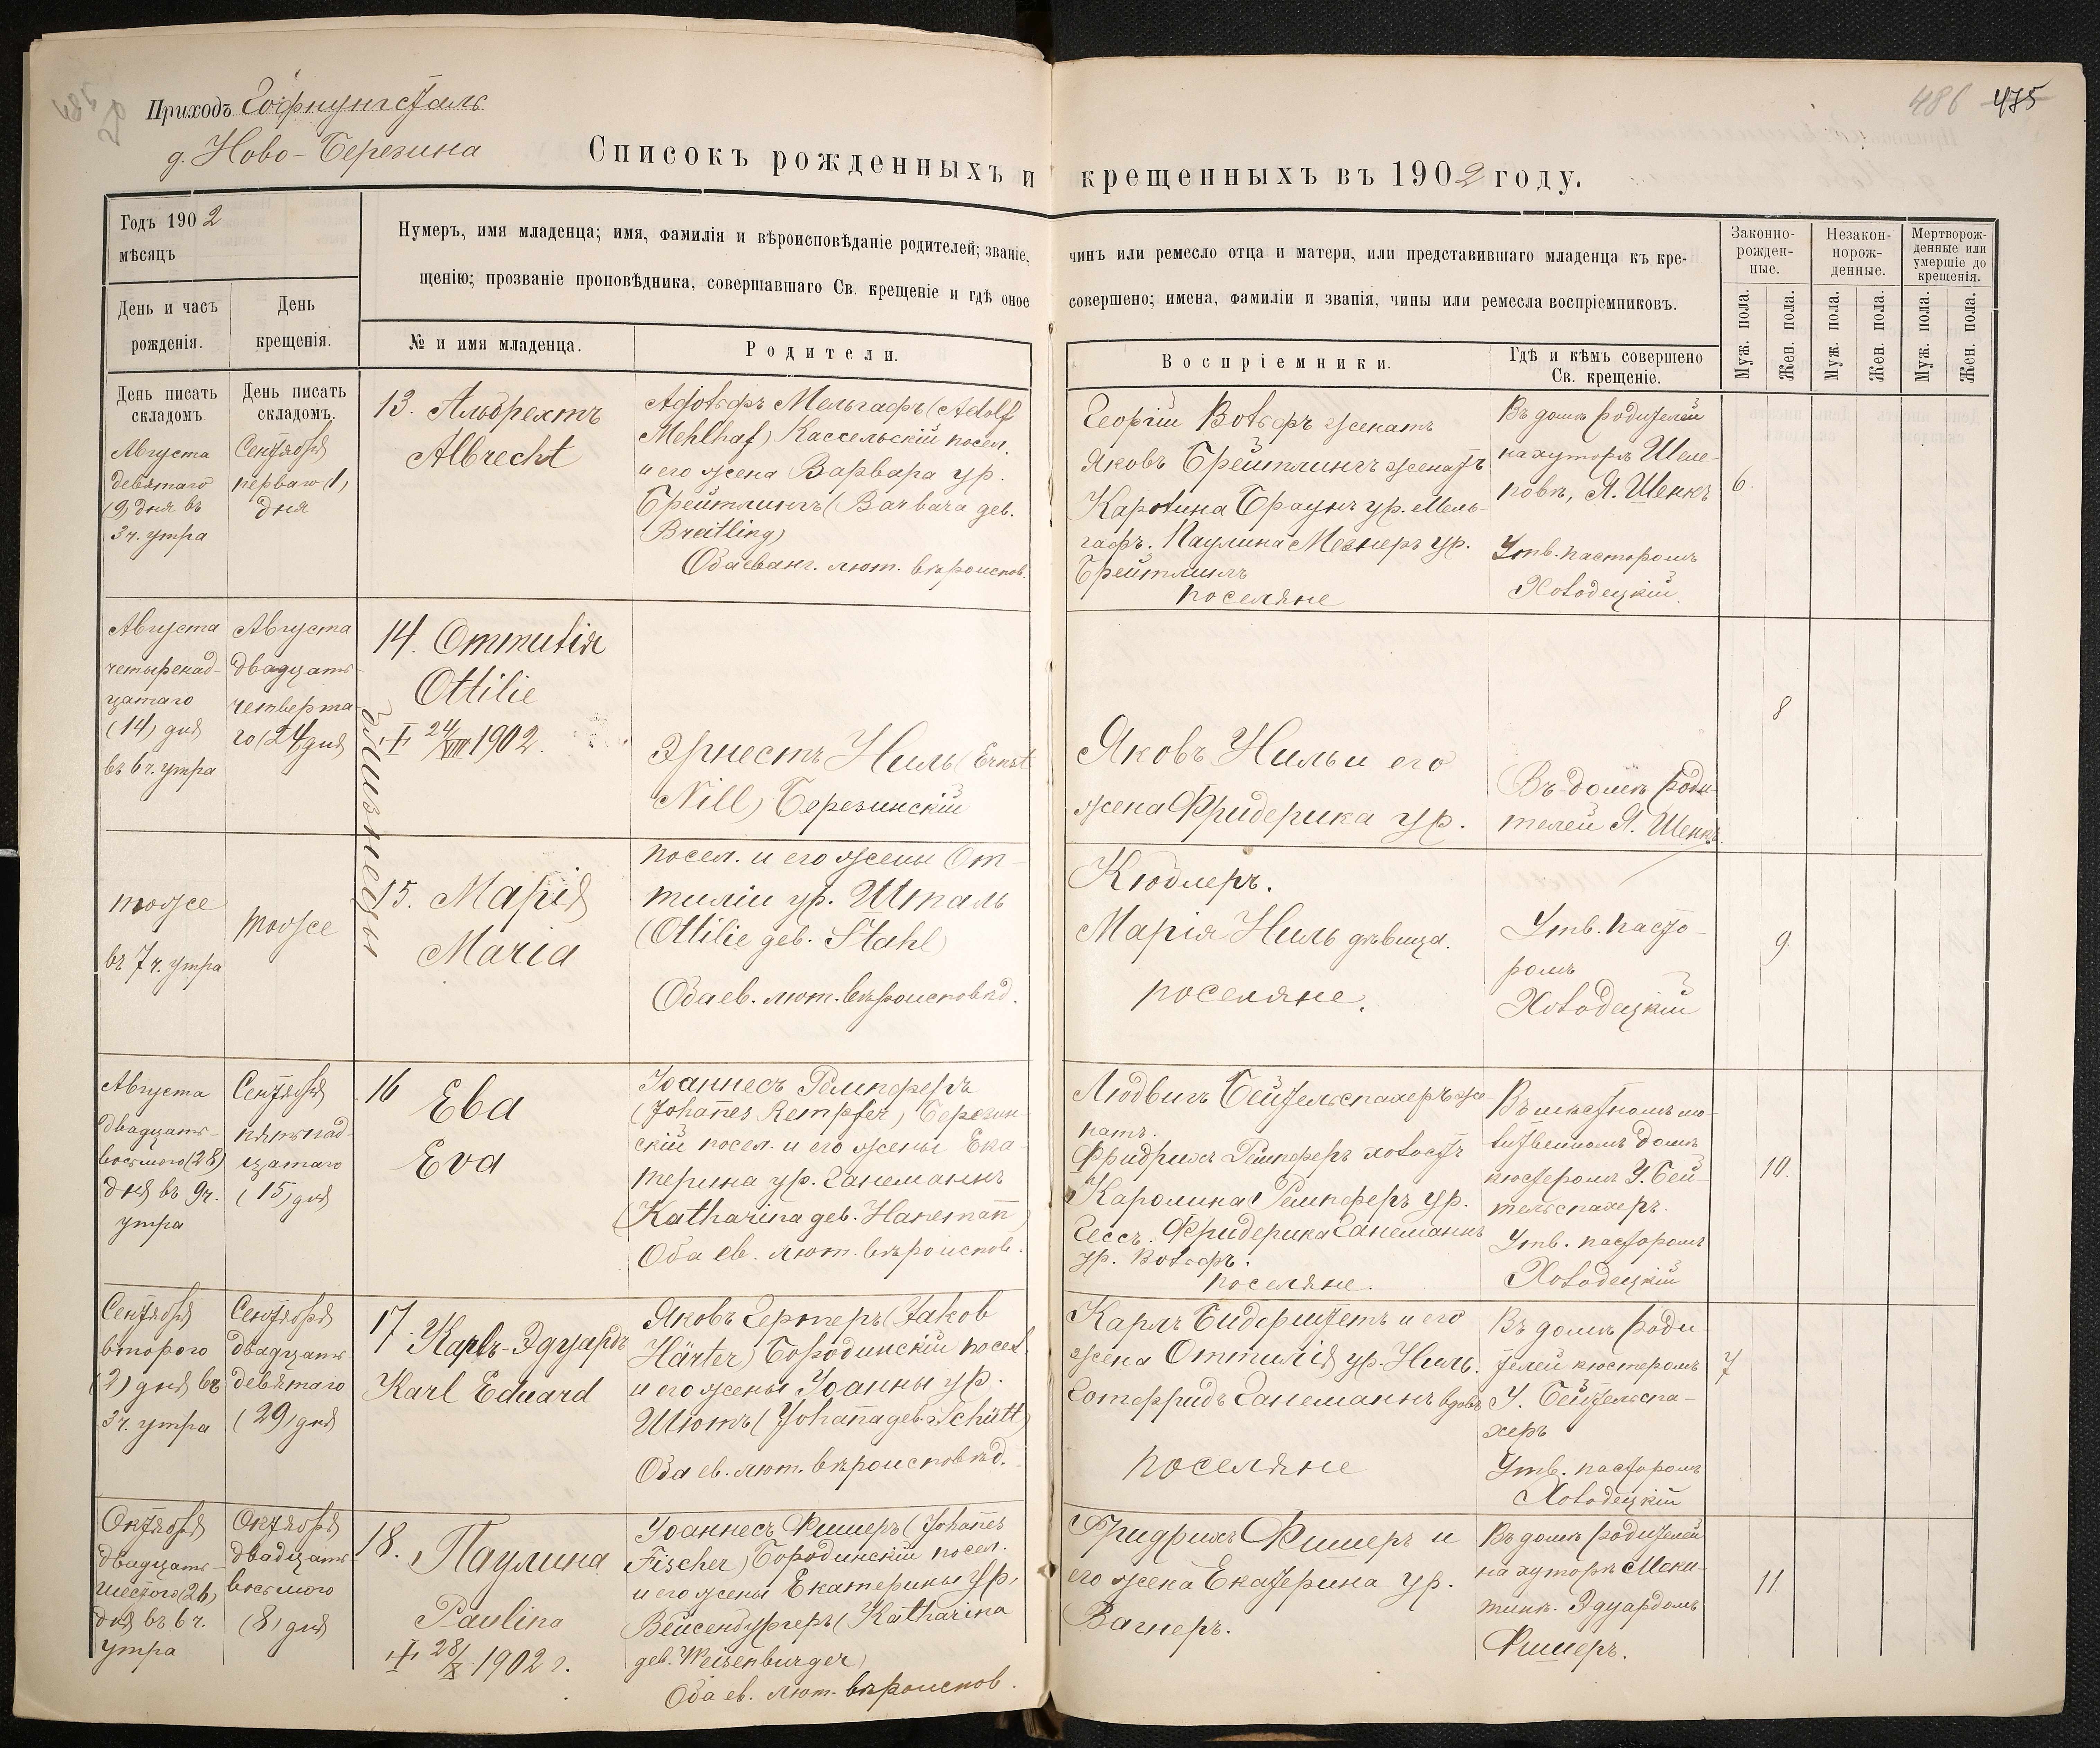 Приходъ Гофнунгсталь
д. Ново-Березина
486 475
Списокъ рожденныхъ и крещенныхъ въ 1902 году.
Годъ 1902
мѣсяцъ
День и часъ
рожденія.
День
крещенія.
Нумеръ, имя младенца; имя, фамилія и вѣроисповѣданіе родителей; званіе, чинъ или ремесло отца и матери, или представившаго младенца къ кре-
щенію; прозваніе проповѣдника, совершавшаго Св. крещеніе и гдѣ оное совершено; имена, фамиліи и званія, чины или ремесла воспріемниковъ.
№ и имя младенца.
Родители.
Воспріемники.
Гдѣ и кѣмъ совершено
Св. крещеніе.
Законно-
рожден-
ные.
Незакон-
норож-
денные.
Мертворож-
денные или
умершіе до
крещенія.
Муж. пола.
Жен. пола.
Муж. пола.
Жен. пола.
Муж. пола.
Жен. пола.
День писать
складомъ.
День писать
складомъ.
Августа
девятаго
(9) дня въ
3 ч. утра
Сентября
перваго (1)
дня
13. Альбрехтъ
Albrecht
Адольфъ Мельгафъ (Adolf
Mehlhaf) Кассельскій посел.
и его жена Варвара ур.
Брейтлингъ (Barbara geb.
Breitling)
Оба еванг. лют. вѣроиспов.
Георгій Вольфъ женатъ
Яковъ Брейтлингъ женатъ
Каролина Браунъ ур. Мель-
гафъ. Паулина Мезнеръ ур.
Брейтлингъ
поселяне
Въ домѣ родителей
на хуторѣ Шеле-
повѣ, Я. Шенкъ
Утв. пасторомъ
Холодецкій.
6.
Августа
четыренад-
цатаго
(14) дня
въ 6 ч. утра
Августа
двадцать-
четверта-
го (24) дня
Близнецы
14. Оттилія
Ottilie
† 24/VIII 1902.
Эрнестъ Ниль (Ernst
Nill) Березинскій
Яковъ Ниль и его
жена Фридерика ур.
Въ домѣ роди-
телей Я. Шенкъ
8
тоже
въ 7 ч. утра
тоже
15. Марія
Maria
посел. и его жены От-
тиліи ур. Шталь
(Ottilie geb. Stahl)
Оба ев. лют. вѣроисповѣд.
Кюблеръ.
Марія Ниль дѣвица.
поселяне.
Утв. пасто-
ромъ
Холодецкій
9
Августа
двадцать-
восьмого (28)
дня въ 9 ч.
утра
Сентября
пятьнад-
цатаго
(15) дня
16 Ева
Eva
Іоаннесъ Ремпферъ
(Johannes Rempfer) Березин-
скій посел. и его жены Ека-
терина ур. Ганеманнъ
(Katharina geb. Hanemann)
Оба ев. лют. вѣроиспов.
Людвигъ Бейтельспахеръ же-
натъ.
Фридрихъ Ремпферъ холостъ
Каролина Ремпферъ ур.
Гессъ. Фридерика Ганеманнъ
ур. Вольфъ.
поселяне.
Въ мѣстномъ мо-
литвенномъ домѣ
кюстеромъ У. Бей-
тельспахеръ.
Утв. пасторомъ
Холодецкій
10.
Сентября
второго
(2) дня въ
3 ч. утра
Сентября
двадцать-
девятаго
(29) дня
17. Карлъ-Эдуардъ
Karl Eduard
Яковъ Гертеръ (Jakob
Härter) Бородинскій посел.
и его жены Іоанны ур.
Шютъ (Johanna geb. Schütt)
Оба ев. лют. вѣроисповѣд.
Карлъ Бидерштетъ и его
жена Оттилія ур. Ниль.
Готфридъ Ганеманнъ вдовъ
поселяне
Въ домѣ роди-
телей кюстеромъ
У. Бейтельспа-
херъ
Утв. пасторомъ
Холодецкій
7
Октября
двадцать-
шестого (26)
дня въ 6 ч.
утра
Октября
двадцать-
восьмого
(8) дня
18. Паулина
Paulina
† 28/X 1902 г.
Іоаннесъ Фишеръ (Johannes
Fischer) Бородинскій посел.
и его жены Екатерины ур.
Вейсенбургеръ (Katharina
geb. Weisenburger)
Оба ев. лют. вѣроиспов.
Фридрихъ Фишеръ и
его жена Екатерина ур.
Вагнеръ.
Въ домѣ родителей
на хуторѣ
Эдуардомъ
Фишеръ.
11